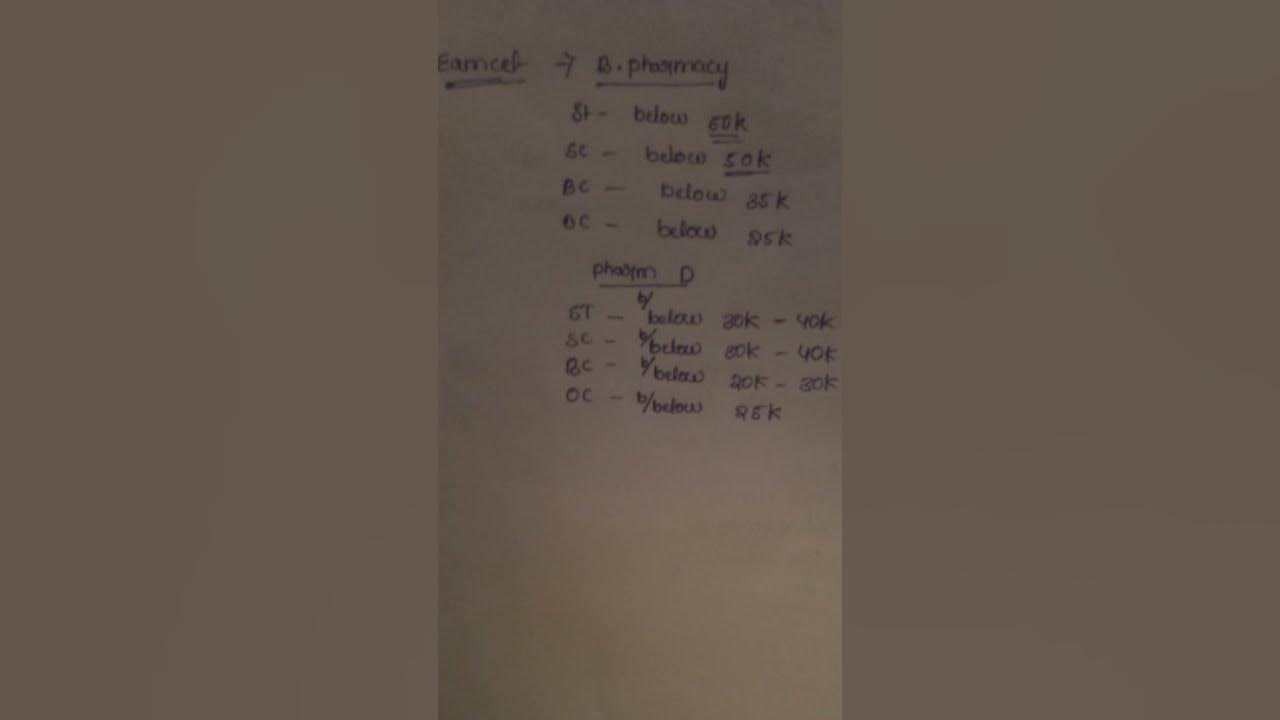 Eamcet → B.pharmacy
St - below 50k
SC - below 50k
BC - below 35k
OC - below 25k
pharm D
ST - b/below 30k - 40k
SC - b/below 30k - 40k
BC - b/below 20k - 30k
OC - b/below 25k